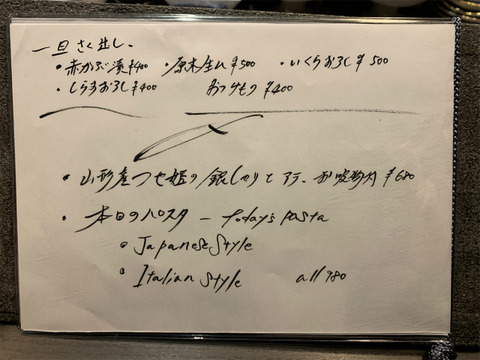 一旦さく出し。
・赤かぶ漬¥400 ・原木生ハム¥500 ・いくらおろし¥500
・しらすおろし¥400 おつけもの ¥400
・山形産つや姫の銀しゃりと ¥680
・本日のパスタ － today's pasta
Japanese Style
Italian Style all 980